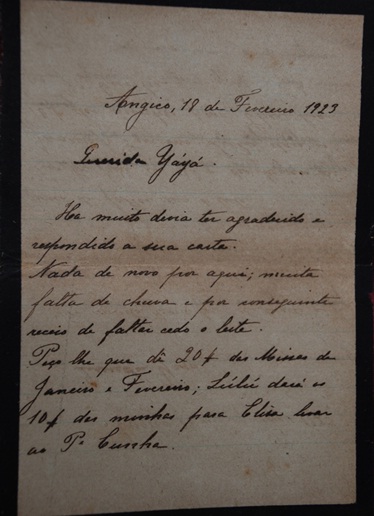 Angico, 18 de Fevereiro 1923
Querida Yáyá.
Ha muito devia ter agradecido e
respondido a sua carta.
Nada de novo por aqui; muita
falta de chuva e por conseguinte
receio de faltar cedo o leite.
Peço lhe que dê 20$ das Missas de
Janeiro e Fevereiro; Lúlú dará os
10$ das minhas para Elisa levar
ao Pe Cunha.